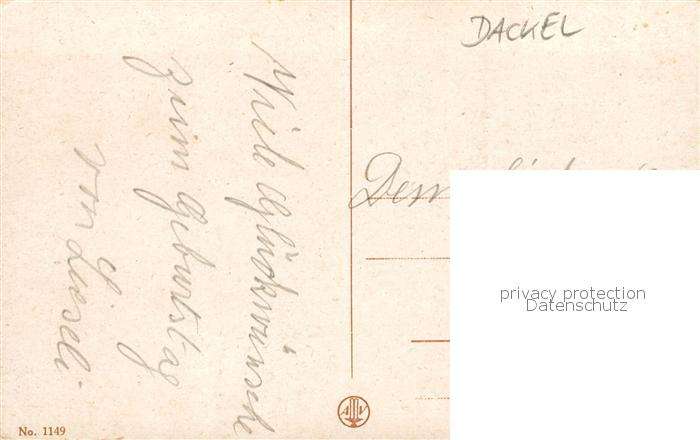 DACKEL
Viele Glückwünsche
zum Geburtstag
von Lieseli
Dem
privacy protection
Datenschutz
AV
No. 1149